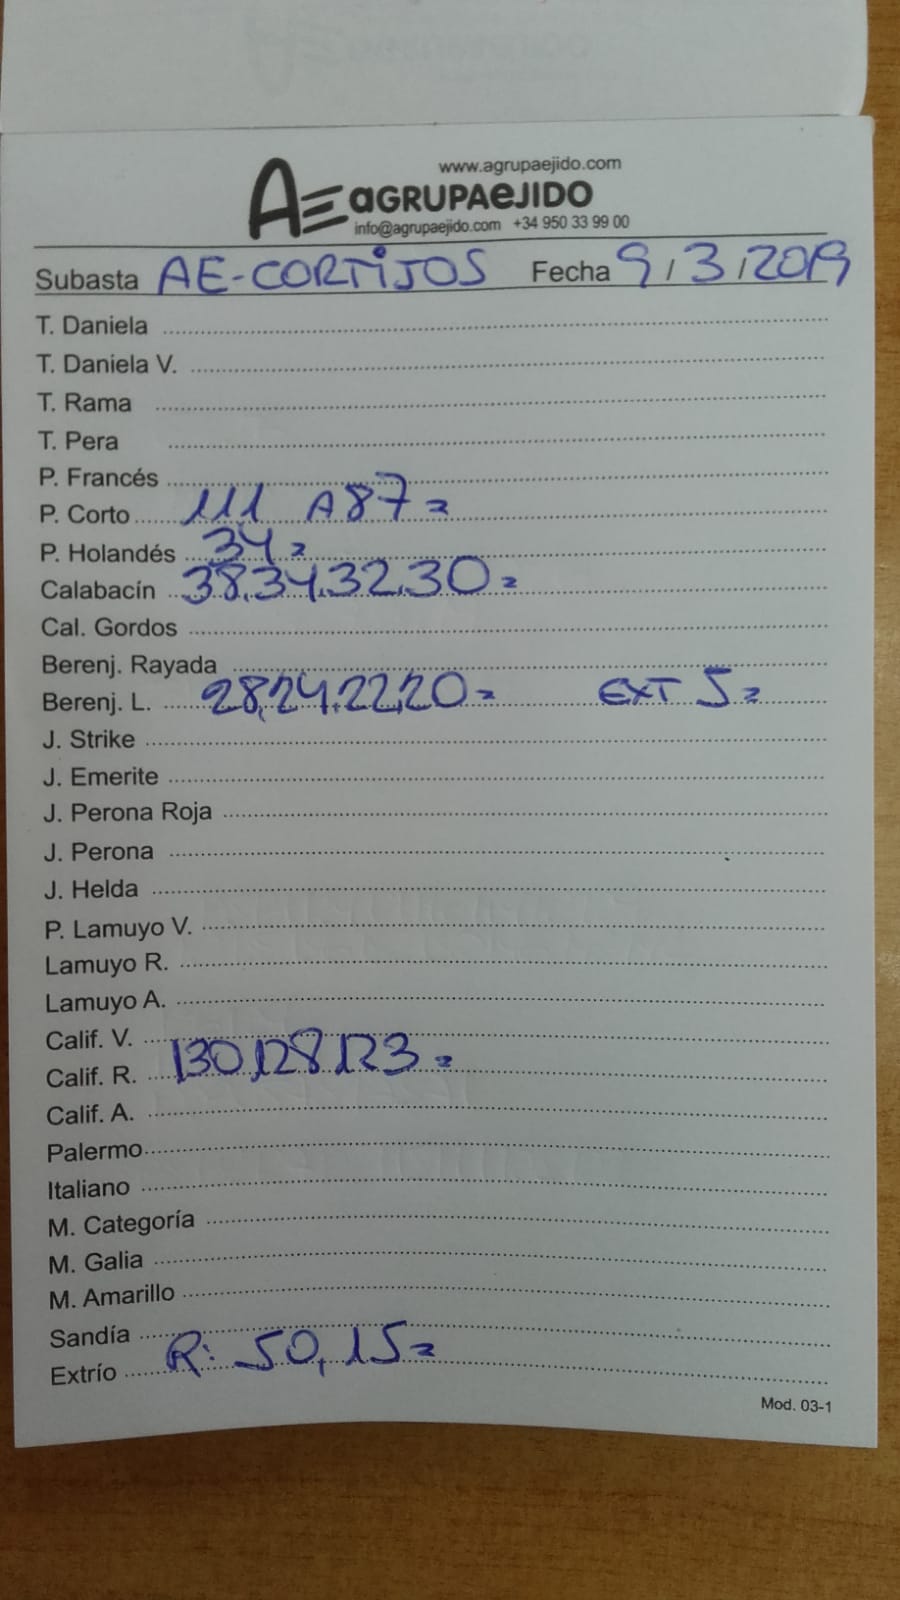 www.agrupaejido.com
AE aGRUPAeJIDO
info@agrupaejido.com +34 950 33 99 00
Subasta AE-CORTIJOS Fecha 9/3/2019
T. Daniela
T. Daniela V.
T. Rama
T. Pera
P. Francés
P. Corto 111 A 87=
P. Holandés 34=
Calabacín 38,34,32,30=
Cal. Gordos
Berenj. Rayada
Berenj. L. 28,24,22,20= EXT 5=
J. Strike
J. Emerite
J. Perona Roja
J. Perona
J. Helda
P. Lamuyo V.
Lamuyo R.
Lamuyo A.
Calif. V.
Calif. R. 130,128,123=
Calif. A.
Palermo
Italiano
M. Categoría
M. Galia
M. Amarillo
Sandía
Extrío R: 50,15=
Mod. 03-1